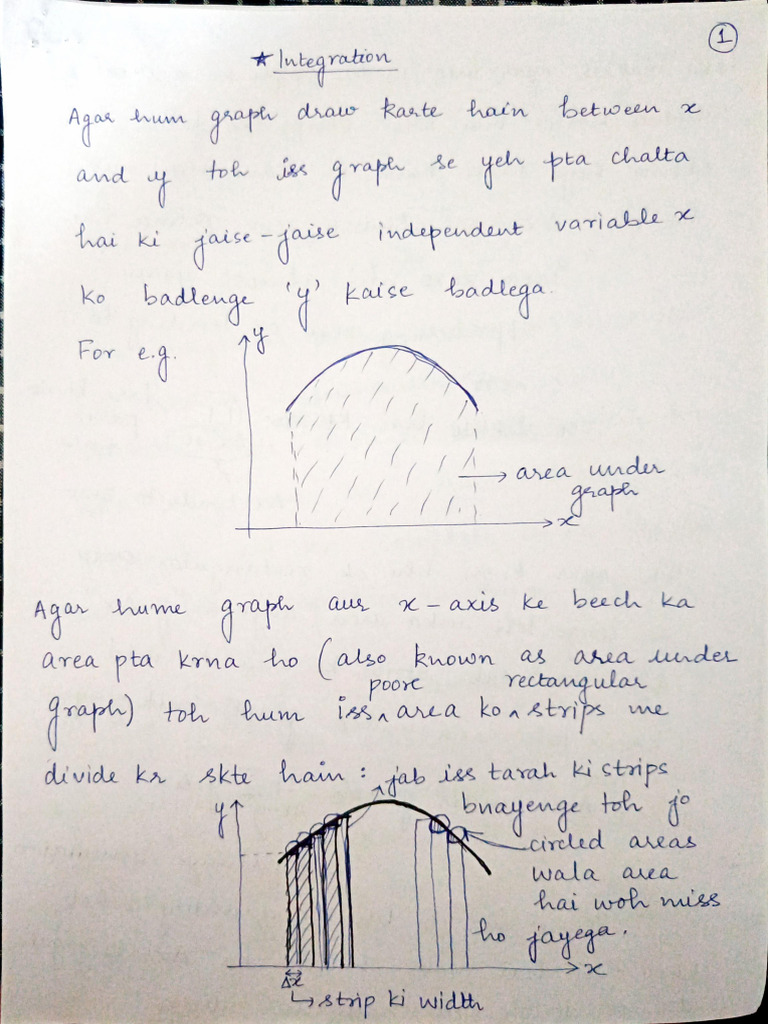 1
★ Integration
Agar hum graph draw karte hain between x
and y toh iss graph se yeh pta chalta
hai ki jaise-jaise independent variable x
ko badlenge 'y' kaise badlega.
For e.g.
y
area under
graph
x
Agar hume graph aur x-axis ke beech ka
area pta krna ho (also known as area under
graph) toh hum iss poore area ko rectangular strips me
divide kr skte hain : jab iss tarah ki strips
bnayenge toh jo
circled areas
wala area
hai woh miss
ho jayega.
y
x
Δx
strip ki width